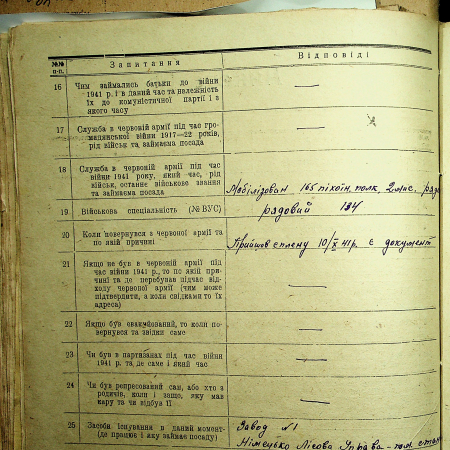 №№ п-п. Запитання Відповіді
16 Чим займались батьки до війни
1941 р. і в даний час та належність
їх до комуністичної партії і з
якого часу —
17 Служба в червоній армії під час гро-
мадянської війни 1917—22 років,
рід військ та займаєма посада —
18 Служба в червоній армії під час
війни 1941 року, який час, рід
військ, останнє військове звання
та займаєма посада Мобілізован 165 піхоін. полк 2 мис. рядо
19 Військова спеціальність (№ ВУС) рядовий 134
20 Коли повернувся з червоної армії та
по якій причині Прийшов с плену 10/X 41 р. є документ
21 Якщо не був в червоній армії під
час війни 1941 р., то по якій при-
чині та де перебував підчас від-
ходу червоної армії (чим може
підтвердити, а коли свідками то їх
адреса) —
22 Якщо був евакуйований, то коли по-
вернувся та звідки саме —
23 Чи був в партизанах під час війни
1941 р. та, де саме і який час —
24 Чи був репресований сам, або хто з
родичів, коли і защо, яку мав
кару та чи відбув її —
25 Засоби існування в даний момент-
(де працює і яку займає посаду) Завод №1
Німецько Лісова Управа-